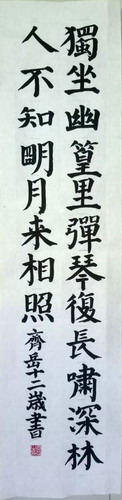 獨坐幽篁里彈琴復長嘯深林
人不知明月来相照
齊岳十二歲書